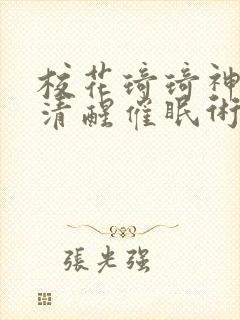 校花琦琦神
清醒催眠術
張光强